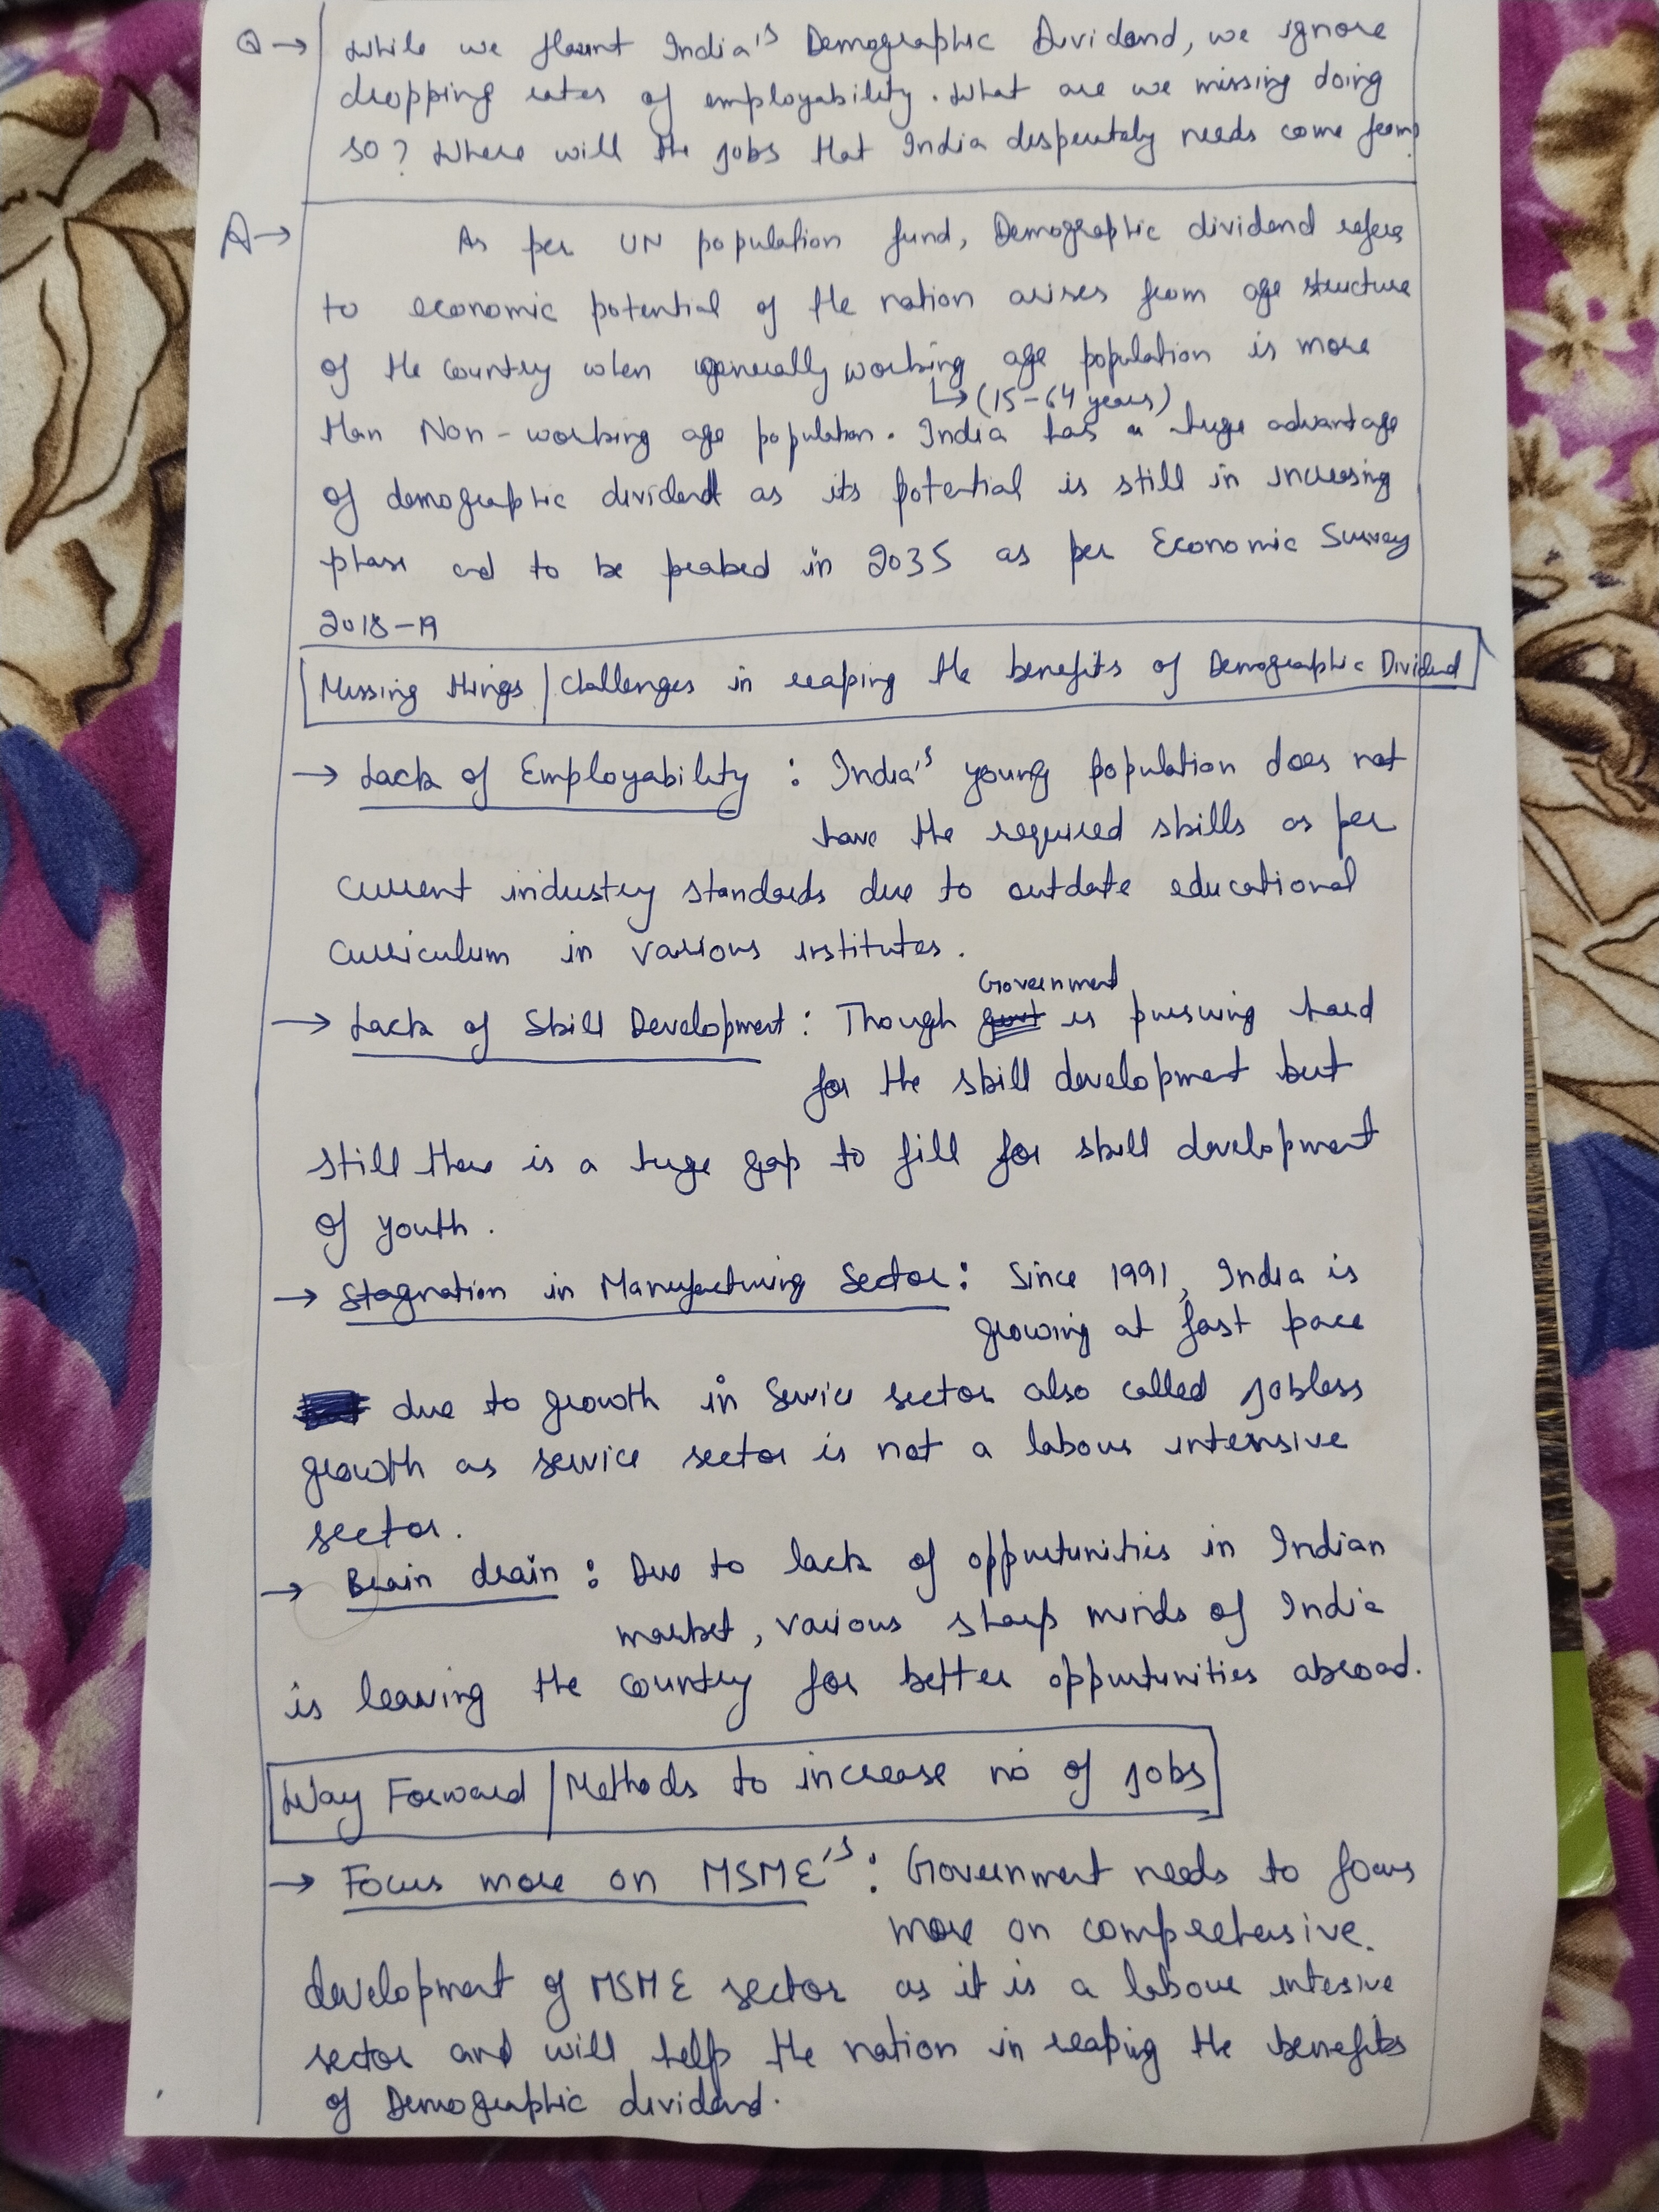 Q → While we flaunt India's Demographic Dividend, we ignore
dropping rates of employability. What are we missing doing
so? Where will the jobs that India desperately needs come from?
A → As per UN population fund, Demographic dividend refers
to economic potential of the nation arises from age structure
of the country when generally working age population is more
↳ (15-64 years)
than Non-working age population. India has a huge advantage
of demographic dividend as its potential is still in increasing
phase and to be peaked in 2035 as per Economic Survey
2018-19
Missing things | Challenges in reaping the benefits of Demographic Dividend
→ Lack of Employability : India's young population does not
have the required skills as per
current industry standards due to outdate educational
curriculum in various institutes.
Government
→ Lack of Skill Development : Though govt is pursuing hard
for the skill development but
still there is a huge gap to fill for skill development
of youth.
→ Stagnation in Manufacturing Sector : Since 1991, India is
growing at fast pace
due to growth in Service sector also called jobless
growth as service sector is not a labour intensive
sector.
→ Brain drain : Due to lack of oppurtunities in Indian
market, various sharp minds of India
is leaving the country for better oppurtunities abroad.
Way Forward | Methods to increase no of jobs
→ Focus more on MSME's : Government needs to focus
more on comprehensive
development of MSME sector as it is a labour intesive
sector and will help the nation in reaping the benefits
of Demographic dividend.